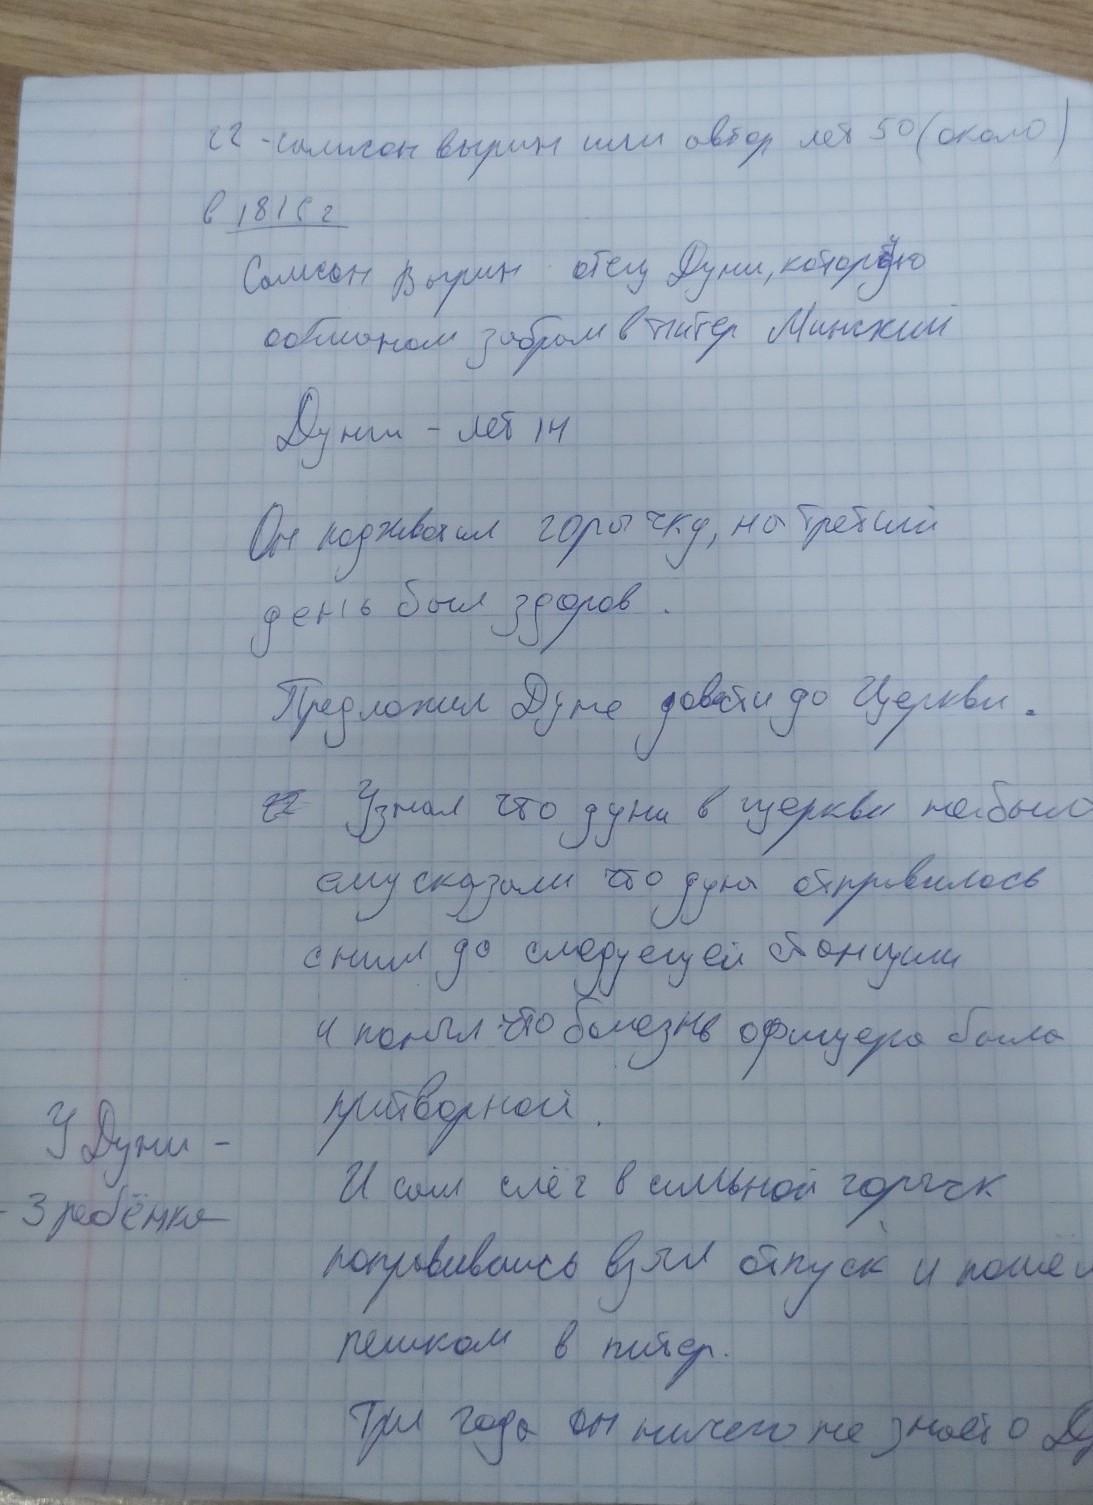 гг - самсон вырин или автор лет 50 (около)
в 1816 г
Самсон Вырин отец Дуни, которую
обманом забрал в питер Минский
Дуни - лет 14
Он подхватил горячку, на третий
день был здоров.
Предложил Дуне довести до Церкви.
Узнал что дуни в церкви не было
ему сказали что дуня отправилась
с ним до следующей станции
и понял что болезнь офицера была
притворной.
У Дуни -
- 3 ребёнка
И сам слёг в сильной горячк
поправившись взял отпуск и пошёл
пешком в питер.
Три года он ничего не знает о Ду